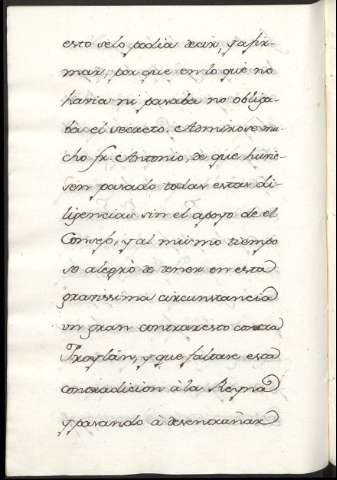 esto selo podia decir, y afir-
mar, por que en lo que no
havia ni pasaba no obliga-
ba el secreto. Admirose mu-
cho fr. Antonio, de que huvie-
sen pasado todas estas di-
ligencias sin el apoyo de el
Consejo, y al mismo tiempo
se alegrò de tener en esta
gravissima circunstancia
un gran contraresto contra
Froylán, y que faltase esta
contradicion à la Reyna
y pasando à desentrañar